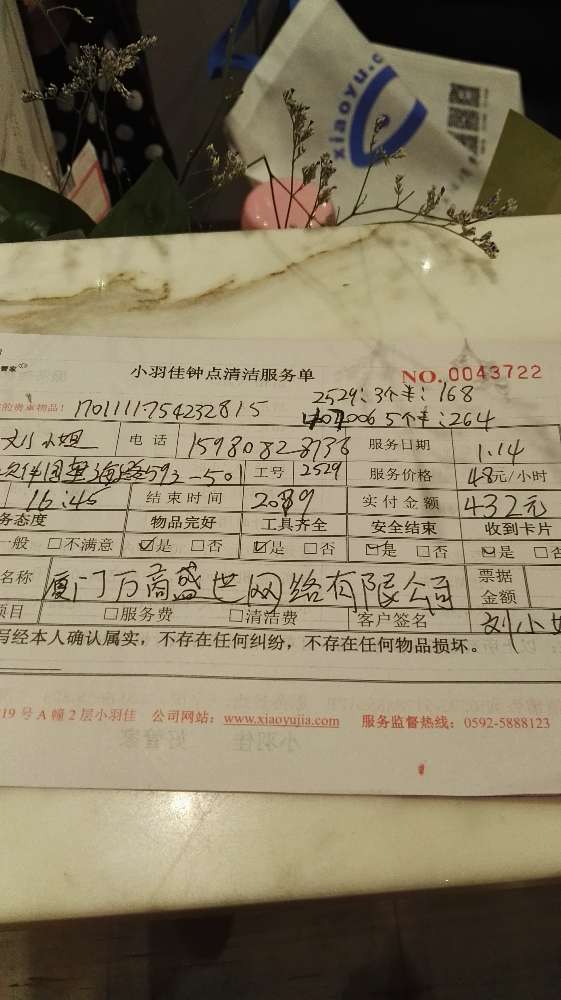 xiaoyu.c
管家
小羽佳钟点清洁服务单
NO. 0043722
2529：3个半：168
的贵重物品！
170111754232815
006 5个半：264
刘小姐 电话 15980828736 服务日期 1.14
593-501 工号 2529 服务价格 48元/小时
16:45 结束时间 实付金额 432元
务态度 物品完好 工具齐全 安全结束 收到卡片
一般 □不满意 ☑是 □否 ☑是 □否 ☑是 □否 ☑是 □否
名称 厦门万高盛世网络有限公司 票据金额
项目 □服务费 □清洁费 客户签名 刘小
写经本人确认属实，不存在任何纠纷，不存在任何物品损坏。
19号A幢2层小羽佳 公司网站：www.xiaoyujia.com 服务监督热线：0592-5888123